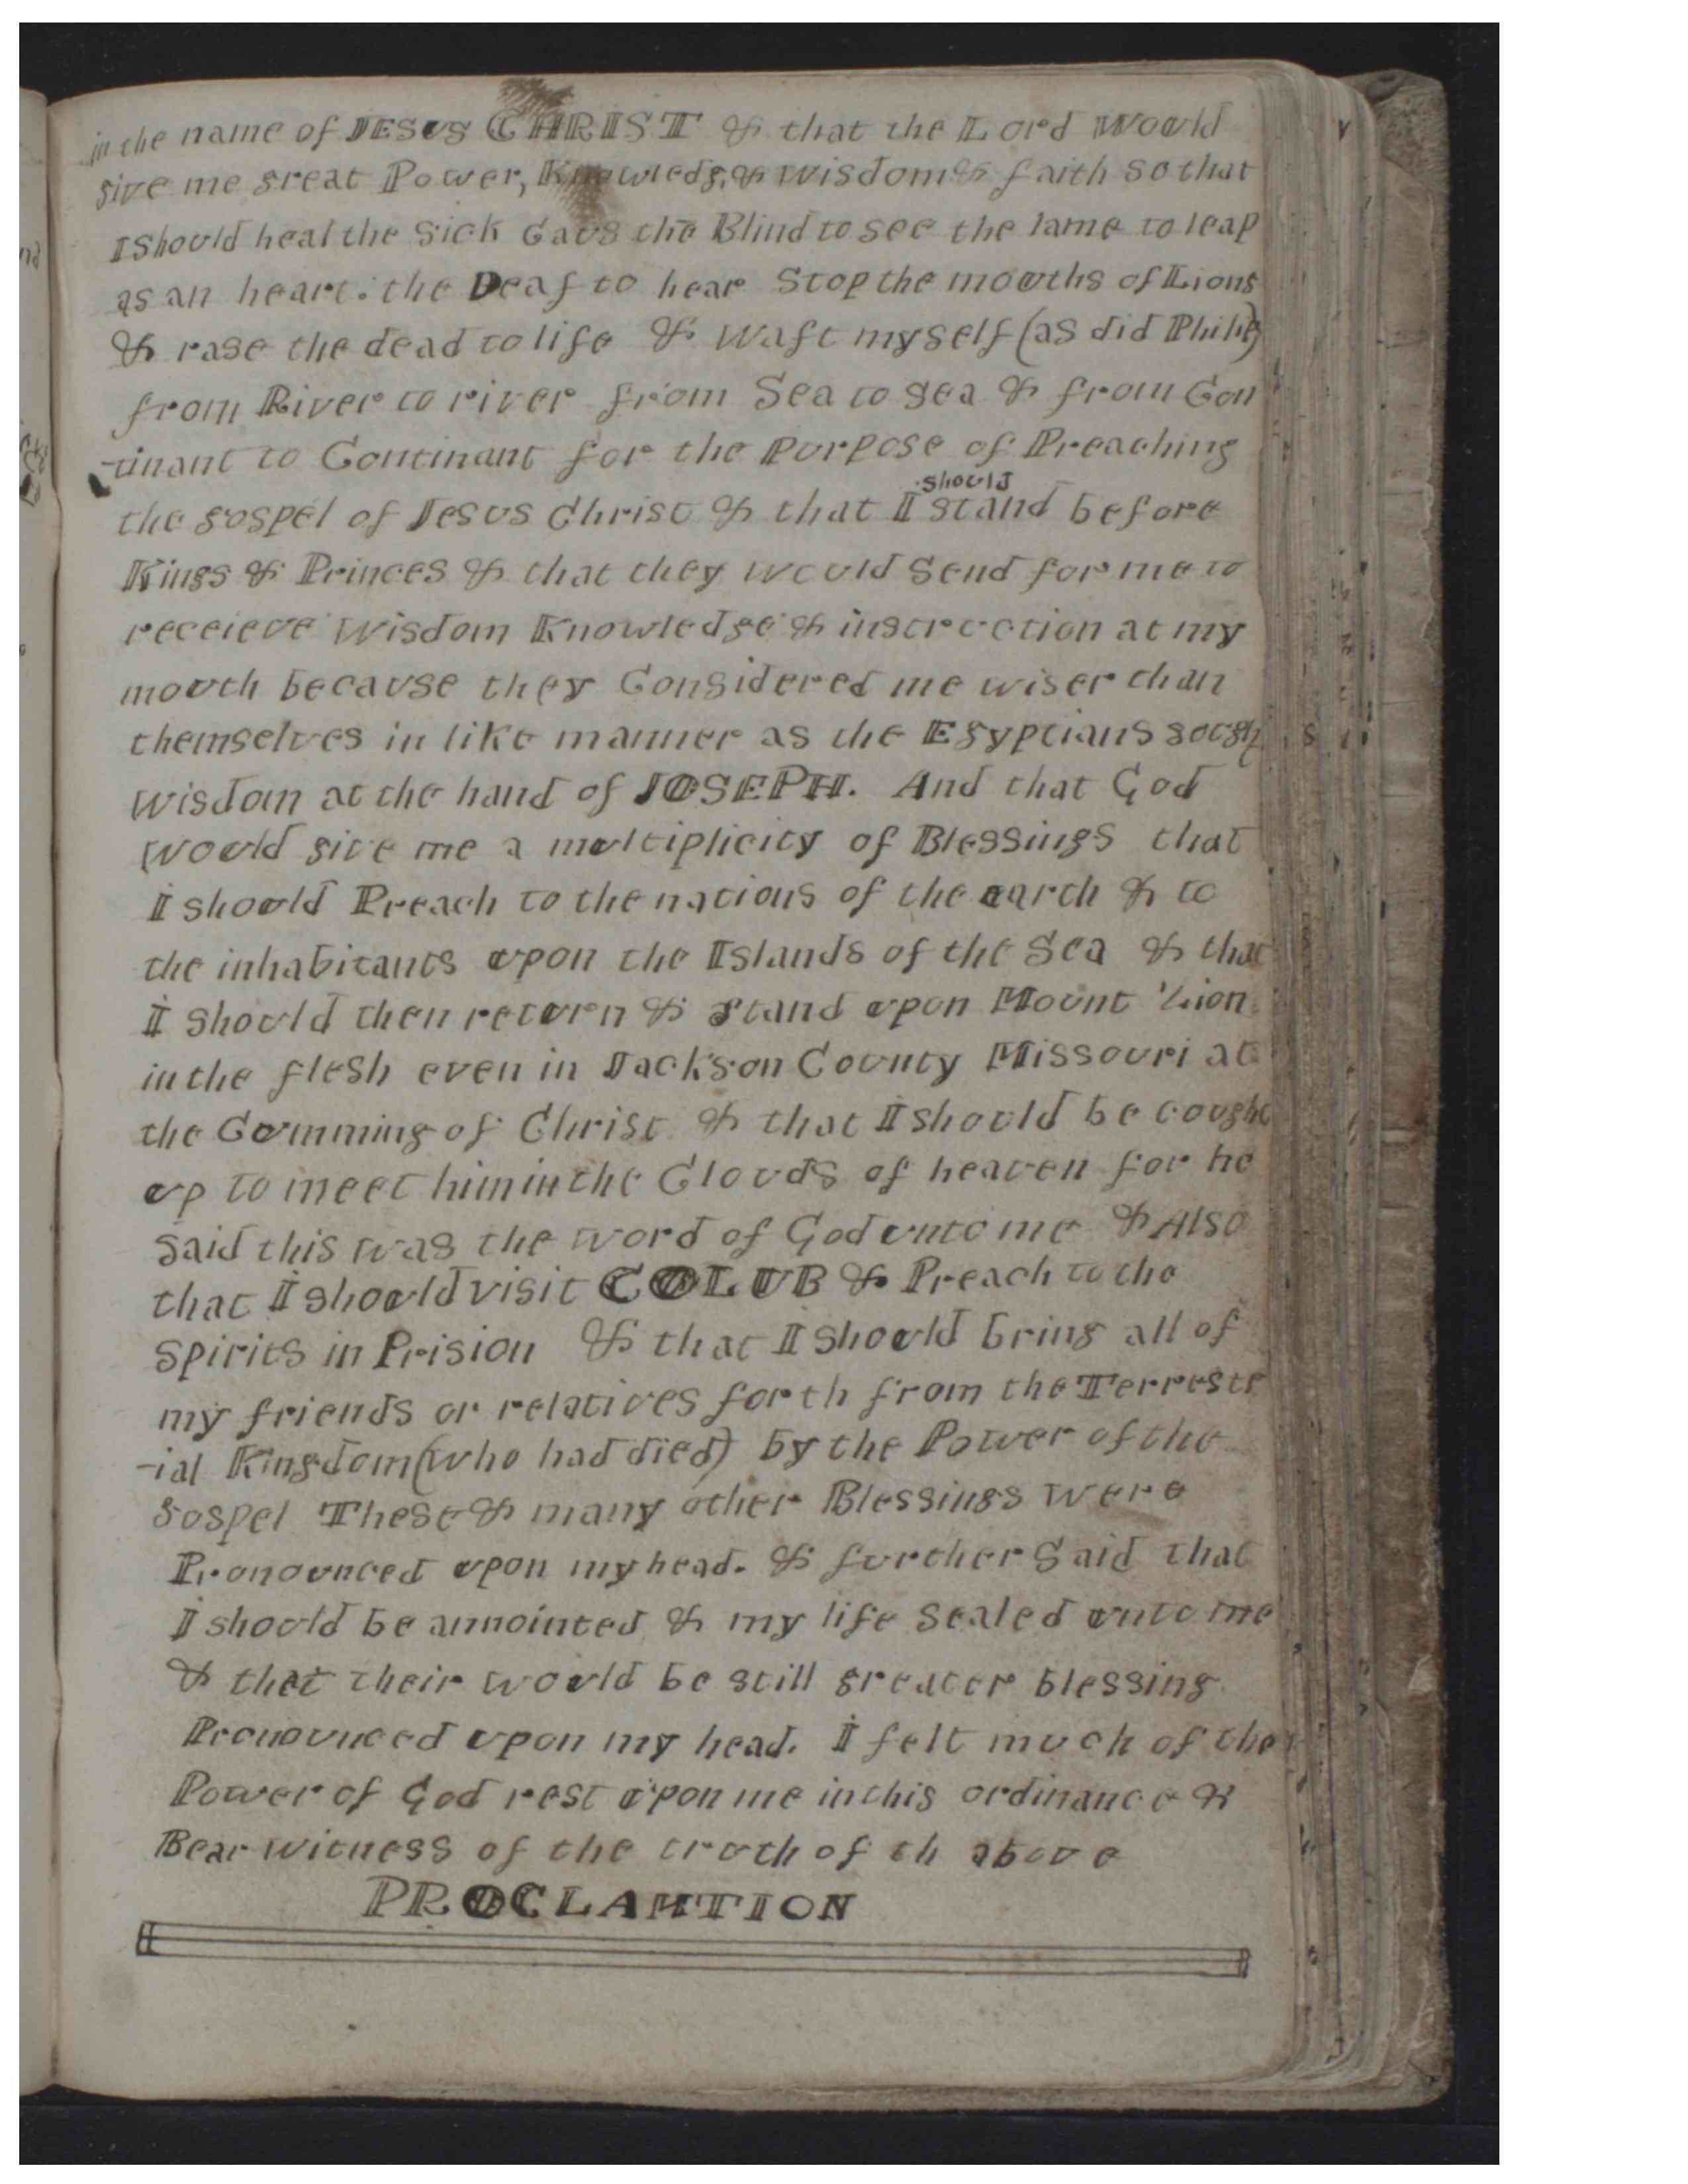 in the name of JESUS CHRIST & that the Lord Would
give me great Power, Knowledg, & wisdom & faith so that
I Should heal the Sick Caus the Blind to see the lame to leap
as an heart. the Deaf to hear Stop the mouths of Lions
& rase the dead to life & Waft myself (as did Philip)
from River to river from Sea to Sea & from Con
-tinant to Continant for the Purpose of Preaching
the gospel of Jesus Christ & that I should stand before
Kings & Princes & that they would Send for me to
receieve Wisdom Knowledge & instruction at my
mouth because they Considered me wiser than
themselves in like manner as the Egyptians sough
wisdom at the hand of JOSEPH. And that God
would give me a multiplicity of Blessings that
I should Preach to the nations of the earth & to
the inhabitants upon the Islands of the Sea & that
I should then return & stand upon Mount Zion
in the flesh even in Jackson County Missouri at
the Comming of Christ & that I should be cought
up to meet him in the Clouds of heaven for he
Said this was the word of God unto me & Also
that I should visit COLUB & Preach to the
Spirits in Prision & that I Should bring all of
my friends or relatives forth from the Terrestr
-ial Kingdom (who had died) by the Power of the
gospel These & many other Blessings were
Pronounced upon my head. & further Said that
I should be annointed & my life Sealed unto me
& that their would be still greater blessing
Pronounced upon my head. I felt much of the
Power of God rest upon me in this ordinance &
Bear witness of the truth of th above
PROCLAMTION